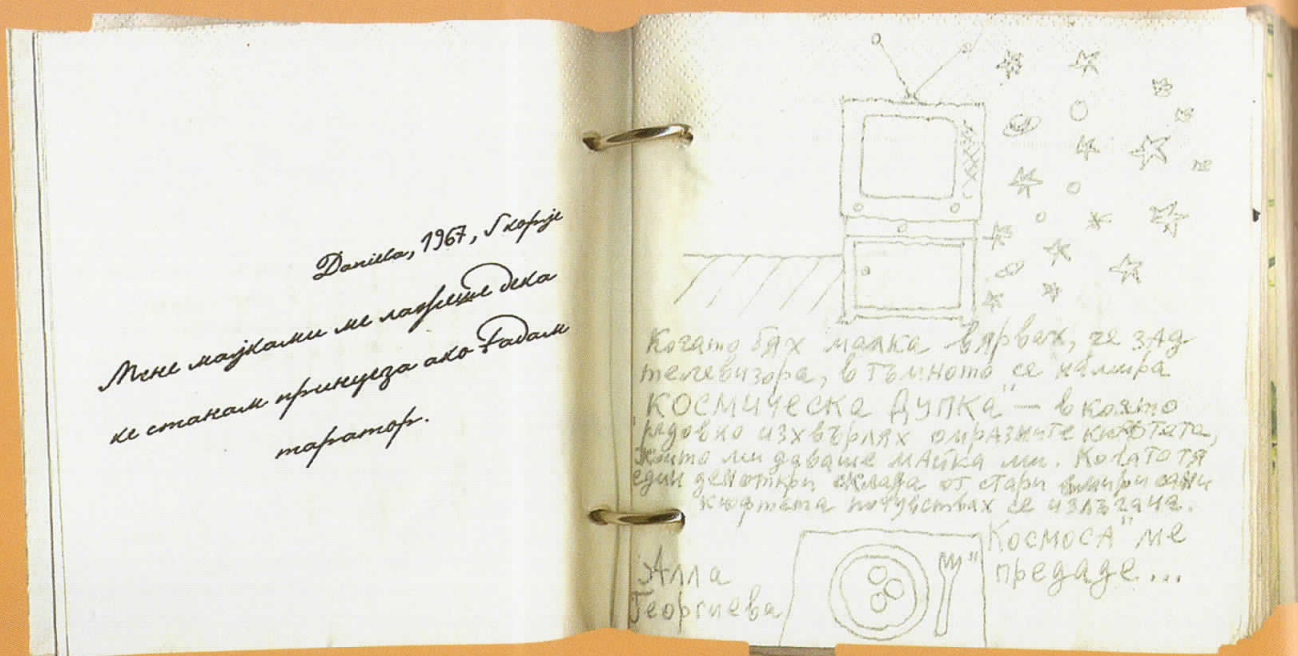 Daniela, 1967, Skopje
Мене мајками ме лажеше дека
ке станам принцеза ако јадам
таратор.
Когато бях малка вярвах, че зад
телевизора, в тъмното се намира
"КОСМИЧЕСКА ДУПКА" – в която
редовно изхвърлях омразните кюфтета,
които ми даваше майка ми. Когато тя
един ден откри склада от стари вмирисани
кюфтета почувствах се излъгана.
"Космоса" ме
предаде...
Алла
Георгиева